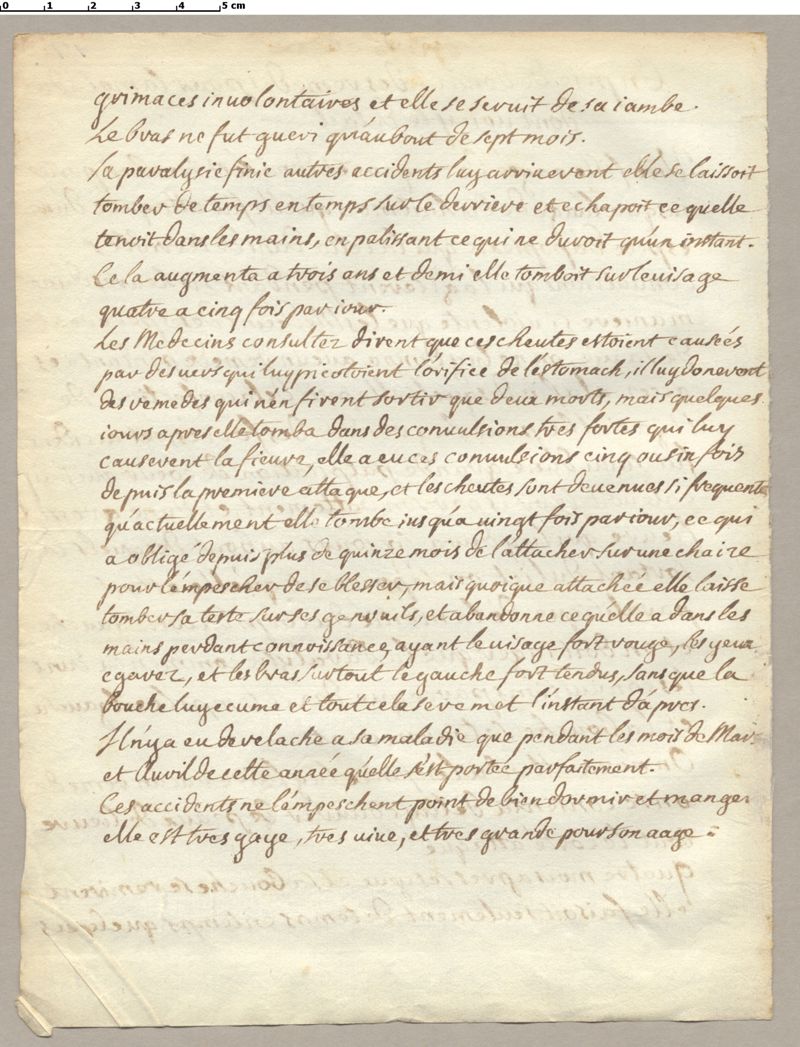 0 1 2 3 4 5 cm
grimaces inuolontaires et elle se seruit de sa iambe.
Le bras ne fut gueri qu'au bout de sept mois.
La paralysie finie autres accidents luy arriuerent elle se laissoit
tomber de temps en temps sur le derriere et echapoit ce quelle
tenoit dans les mains, en palissant ce qui ne duroit qu'un instant.
Cela augmenta a trois ans et demi elle tomboit sur le uisage
quatre a cinq fois par iour.
Les Medecins consultez dirent que ces cheutes estoient causées
par des uers qui luy picotoient l'orifice de l'estomach, il luy donerent
des remedes qui n'en firent sortir que deux morts, mais quelques
iours apres elle tomba dans des conuulsions tres fortes qui luy
causerent la fieure, elle a eu ces conuulsions cinq ou six fois
depuis la premiere attaque, et les cheutes sont deuenues si frequente
qu'actuellement elle tombe iusqu'a uingt fois par iour, ce qui
a obligé depuis plus de quinze mois de l'attacher sur une chaire
pour l'empescher de se blesser, mais quoique attachée elle laisse
tomber sa teste sur ses genouils, et abandonne ce qu'elle a dans les
mains perdant connoissance, ayant le uisage fort rouge, les yeux
egarez, et les bras surtout le gauche fort tendus, sans que la
bouche luy ecume et tout cela se remet l'instant d'apres.
Il n'y a eu de relache a sa maladie que pendant les mois de Mars
et Auril de cette année qu'elle s'est portée parfaitement.
Ces accidents ne l'empeschent point de bien dormir et manger
elle est tres gaye, tres uiue, et tres grande pour son aage.